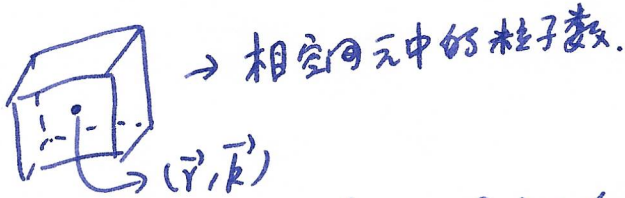 → 相空间元中的粒子数.
→ (r⃗, k⃗)